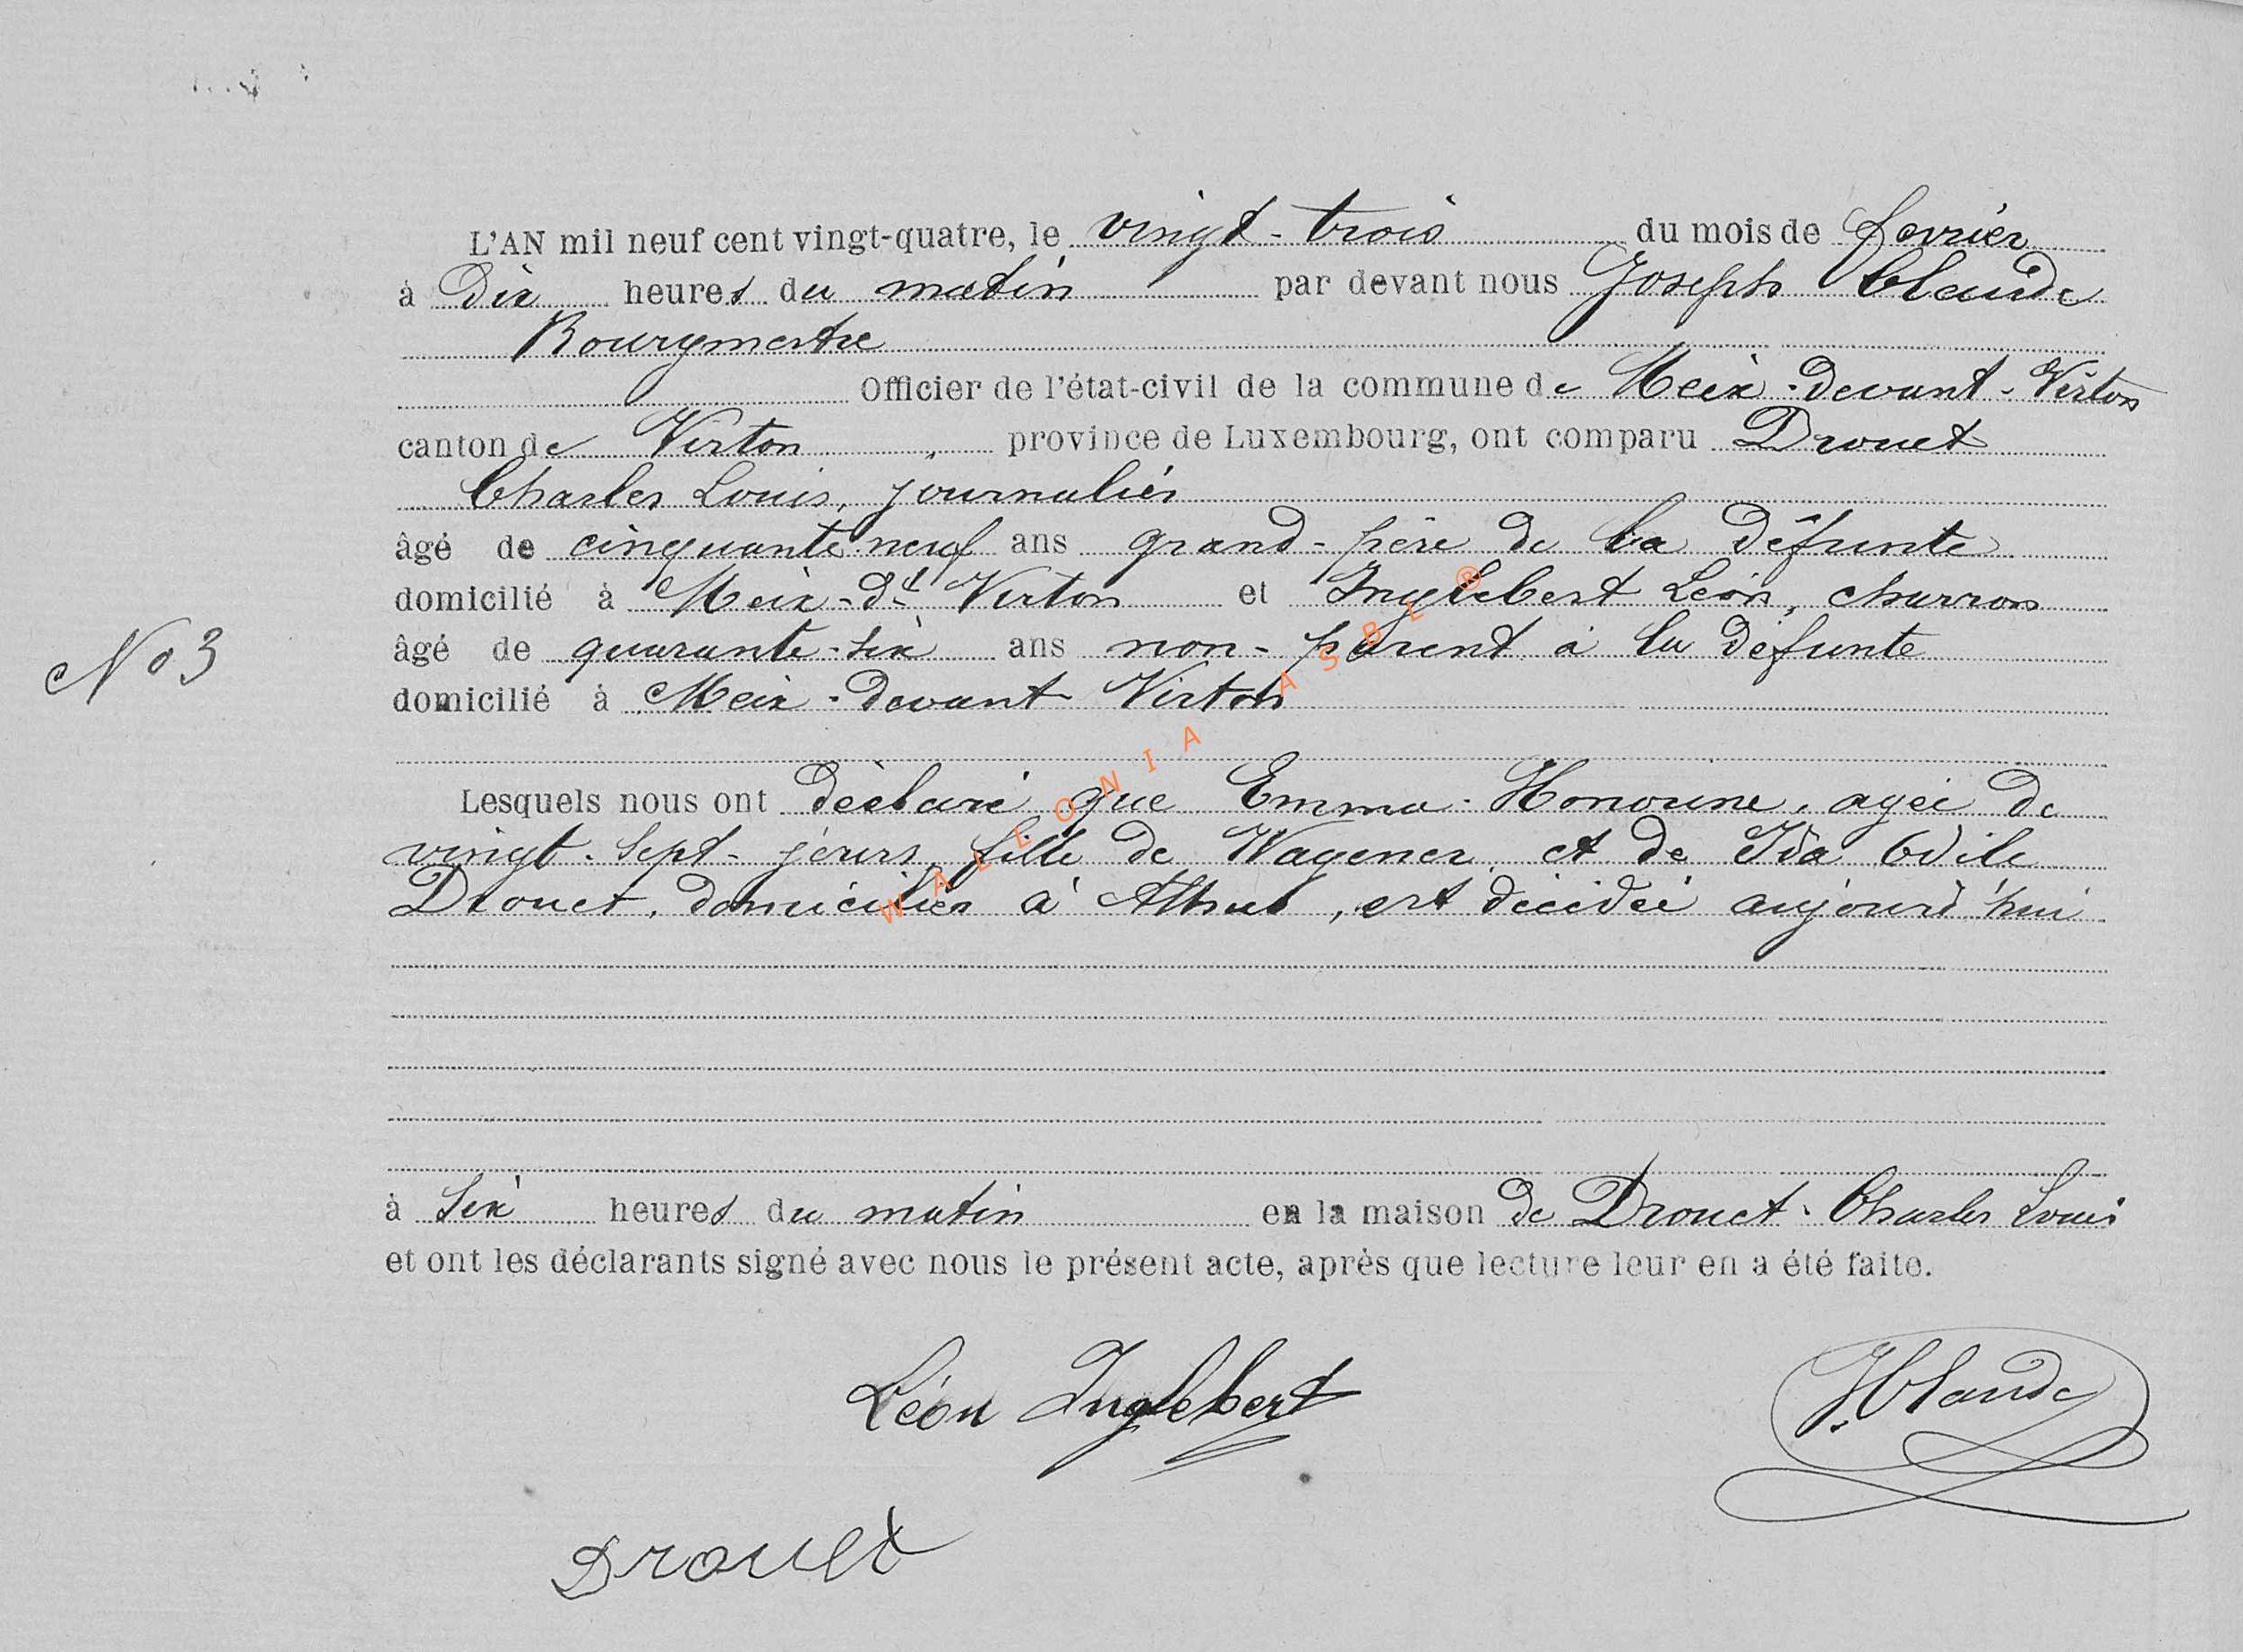 L'AN mil neuf cent vingt-quatre, le vingt-trois du mois de fevrier
à Dix heures du matin par devant nous Joseph Claude
Bourgmestre
Officier de l'état-civil de la commune de Meix-devant-Virton
canton de Virton, province de Luxembourg, ont comparu Drouet
Charles Louis, journalier
âgé de cinquante-neuf ans grand-père de la défunte
domicilié à Meix-dt Virton et Inglebert Léon, charron
No 3
âgé de quarante-six ans non-parent à la défunte
domicilié à Meix-devant Virton
Lesquels nous ont déclaré que Emma-Honorine, agée de
vingt-sept-jours, fille de Wagener et de Ida Odile
Drouet, domiciliés à Athus, est décédée aujourd'hui
à six heures du matin en la maison de Drouet-Charles Louis
et ont les déclarants signé avec nous le présent acte, après que lecture leur en a été faite.
Léon Inglebert
J Claude
Drouet
WALLONIA ASBL ®